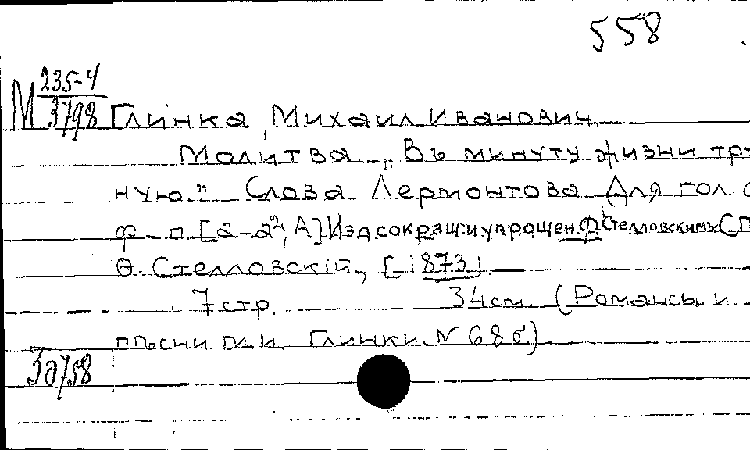 558
М 235-4
3798
Глинка, Михаил Иванович
Молитва „Въ минуту жизни тру
ную." Слова Лермонтова Для гол с
ф-п. [a-a², A] Изд сокращ и упрощен. Ф Стелловскимъ СП
Ѳ. Стелловскій, [1873]
7 стр. 34 см (Романсы и
пѣсни М И Глинки N 68 б)
30758